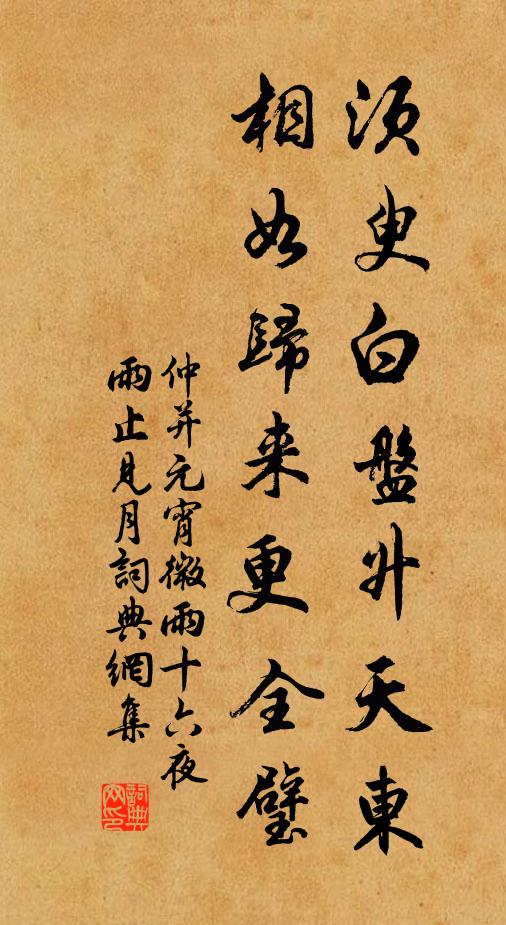 須臾白盤升天東
相如歸来更全璧
仲并元宵微雨十六夜
雨止見月詞典網集
詞典網印